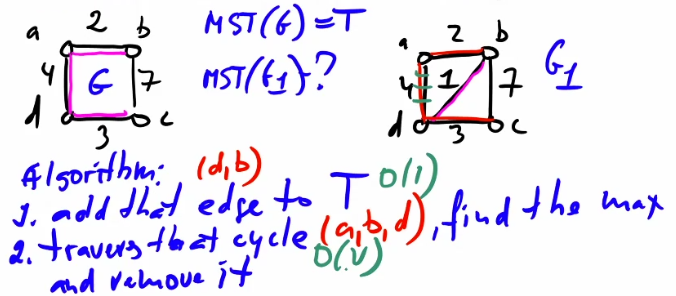 a 2 b
4 G 7
d 3 c
MST(G)=T
MST(G1)-?
a 2 b
4 1 7
d 3 c
G1
Algorithm: (d,b)
1. add that edge to T O(1)
2. travers that cycle (a,b,d), find the max
O(V)
and remove it